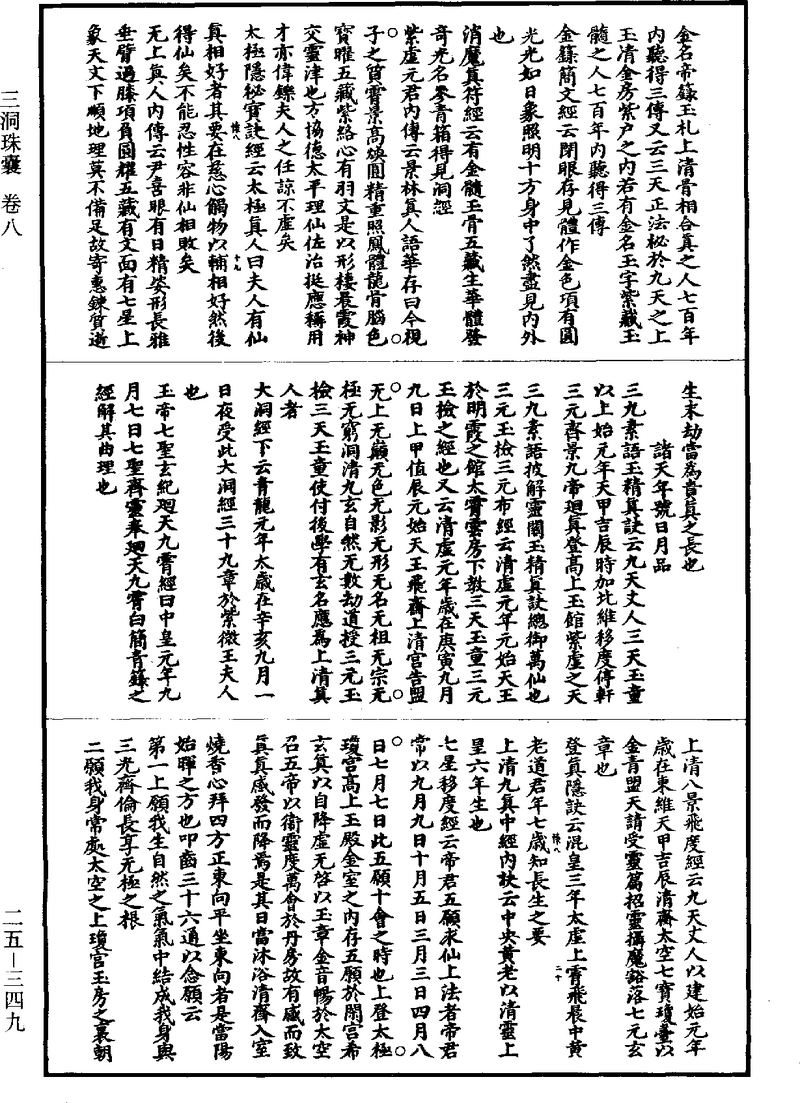 三洞珠囊 卷八
金名帝籙玉札上清骨相合真之人七百年
內聽得三傳又云三天正法秘於九天之上
玉清金房紫戶之內若有金名玉字紫藏玉
髓之人七百年內聽得三傳
金籙簡文經云閉眼存見體作金色項有圓
光光如日象照明十方身中了然盡見內外
也
消魔真符經云有金髓玉骨五藏生華體發
奇光名參青籍得見洞經
紫虛元君內傳云景林真人語華存曰今視
子之質霄景高煥圓精重照鳳體龍骨腦色
寶曜五藏紫絡心有羽文是以形棲晨霞神
交靈津也方協德太平理仙佐治挺應稱用
才亦偉鑠夫人之任諒不虛矣
太極隱秘寶訣經云太極真人曰夫人有仙
真相好者其要在慈心觸物以輔相好然後
得仙矣不能忍性容非仙相敗矣
无上真人內傳云尹喜眼有日精姿形長雅
垂臂過膝項負圓耀五藏有文面有七星上
象天文下順地理莫不備足故寄惠鍊質逝
生末劫當為耆真之長也
諸天年號日月品
三九素語玉精真訣云九天丈人三天玉童
以上始元年天甲吉辰時加北維移度停軒
三元齊景九帝迴真登高上玉館紫虛之天
三九素語披解靈關玉精真訣總御萬仙也
三元玉檢三元布經云清虛元年元始天王
於明霞之館太霄雲房下教三天玉童三元
玉檢之經也又云清虛元年歲在庚寅九月
九日上甲值辰元始天王飛齋上清宮告盟
无上无巔无色无影无形无名无祖无宗无
極无窮洞清九玄自然无數劫道授三元玉
檢三天玉童使付後學有玄名應為上清真
人者
大洞經下云青龍元年太歲在辛亥九月一
日夜受此大洞經三十九章於紫微王夫人
也
玉帝七聖玄紀迴天九霄經曰中皇元年九
月七日七聖齊靈奉迴天九霄白簡青籙之
經解其曲理也
上清八景飛度經云九天丈人以建始元年
歲在東維天甲吉辰清齋太空七寶瓊臺以
金青盟天請受靈篇招靈攝魔豁落七元玄
章也
登真隱訣云混皇三年太虛上霄飛晨中黃
老道君年七歲知長生之要
上清九真中經內訣云中央黃老以清靈上
皇六年生也
七星移度經云帝君五願求仙上法者帝君
常以九月九日十月五日三月三日四月八
日七月七日此五願十會之時也上登太極
瓊宮高上玉殿金室之內存五願於閑宮希
玄真以自降虛无啓以玉章金音暢於太空
召五帝以衛靈度萬會於丹房故有感而致
真真感發而降焉是其日當沐浴清齋入室
燒香心拜四方正東向平坐東向者是當陽
始暉之方也叩齒三十六通以念願云
第一上願我生自然之氣氣中結成我身與
三光齊倫長享元極之根
二願我身常處太空之上瓊宮玉房之裏朝
二五—三四九